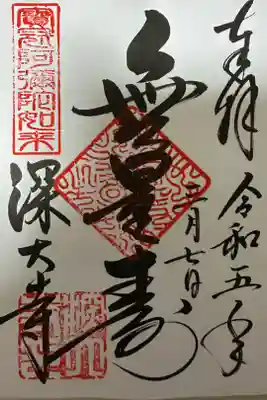 奉拝
令和五年
二月七日
無量寿
寶冠阿彌陀如来
深大寺